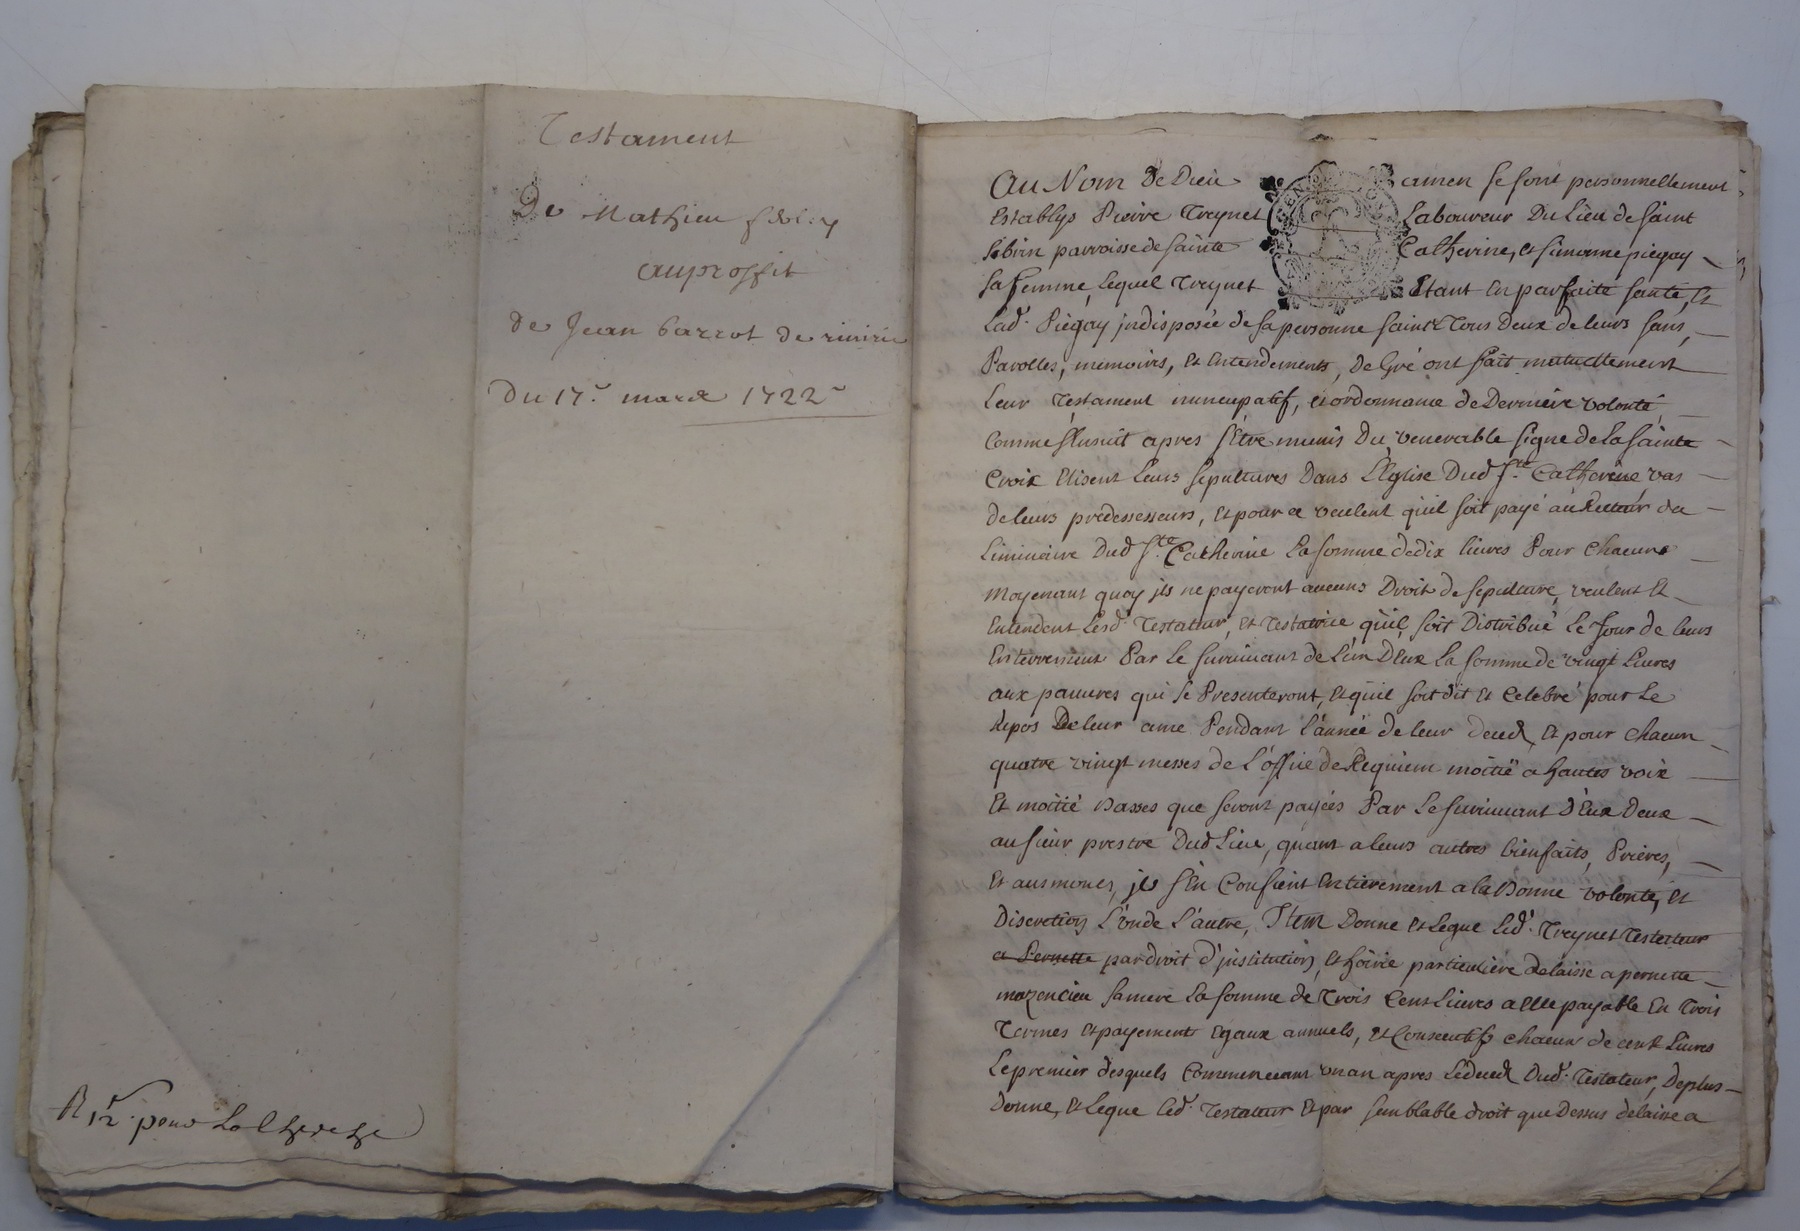 Testament
De Mathieu
auproffit
de Jean barrot de
Du 17.e mars 1722
R 12.s pour La
Au Nom de Dieu amen se sont personnellement
Establys Pierre Treynet Laboureur Du Lieu de saint
sibrin parroisse de sainte Catherine, et simonne piegay
sa femme, Lequel Treynet Etant En parfaite santé, Et
Lad. Piegay jndisposée de sa personne saints Tous Deux de leurs sans,
Parolles, memoires, Et Entendements, De Gré ont fait mutuellement
Leur Testament nuncupatif, et ordonnance de Derniere volonté,
Comme s'ensuit apres s'Etre munis Du venerable signe de La sainte
Croix Elisent Leurs sepultures Dans L'Eglise Dud Ste. Catherine vas
de leurs predessesseurs, Et pour ce veulent qu'il soit payé au Recteur du
Liminaire Dud Ste. Catherine La somme de dix livres Pour Chacuns
Moyenant quoy jls ne payeront aucuns Droit de sepulture, veulent Et
Entendent Lesd. Testateur, Et Testatrice qu'il soit Distribué Le Jour de leurs
Enterrement Par Le survivant de L'un D'Eux La somme de vingt Livres
aux pauvres qui se Presenteront, Et qu'il soit dit Et Celebré pour Le
Repos De leur ame Pendant l'année de leur deced, Et pour chacun
quatre vingt messes de L'office de Requiem moitié a hautes voix
Et moitié Basses que seront payées Par Le survivant d'Eux Deux
au sieur prestre Dud Lieu, quant a leurs autres bienfaits, Prieres,
Et ausmones, jls s'En Confient Entierement a la Bonne volonté, Et
Discretion L'on de L'autre, Item Donne Et Legue Led. Treynet Testateur
a Pernette par droit d'jnstitution, Et hoirie particuliere delaisse a pernette
mazencieu sa mere La somme de Trois Cent Livres a Elle payable En Trois
Termes Et payement Egaux annuels, Et Consecutifs chacun de cent Livres
Le premier desquels Commencant un an apres Le deced Dud. Testateur, De plus
Donne, Et Legue Led. Testateur Et par semblable droit que Dessus delaisse a